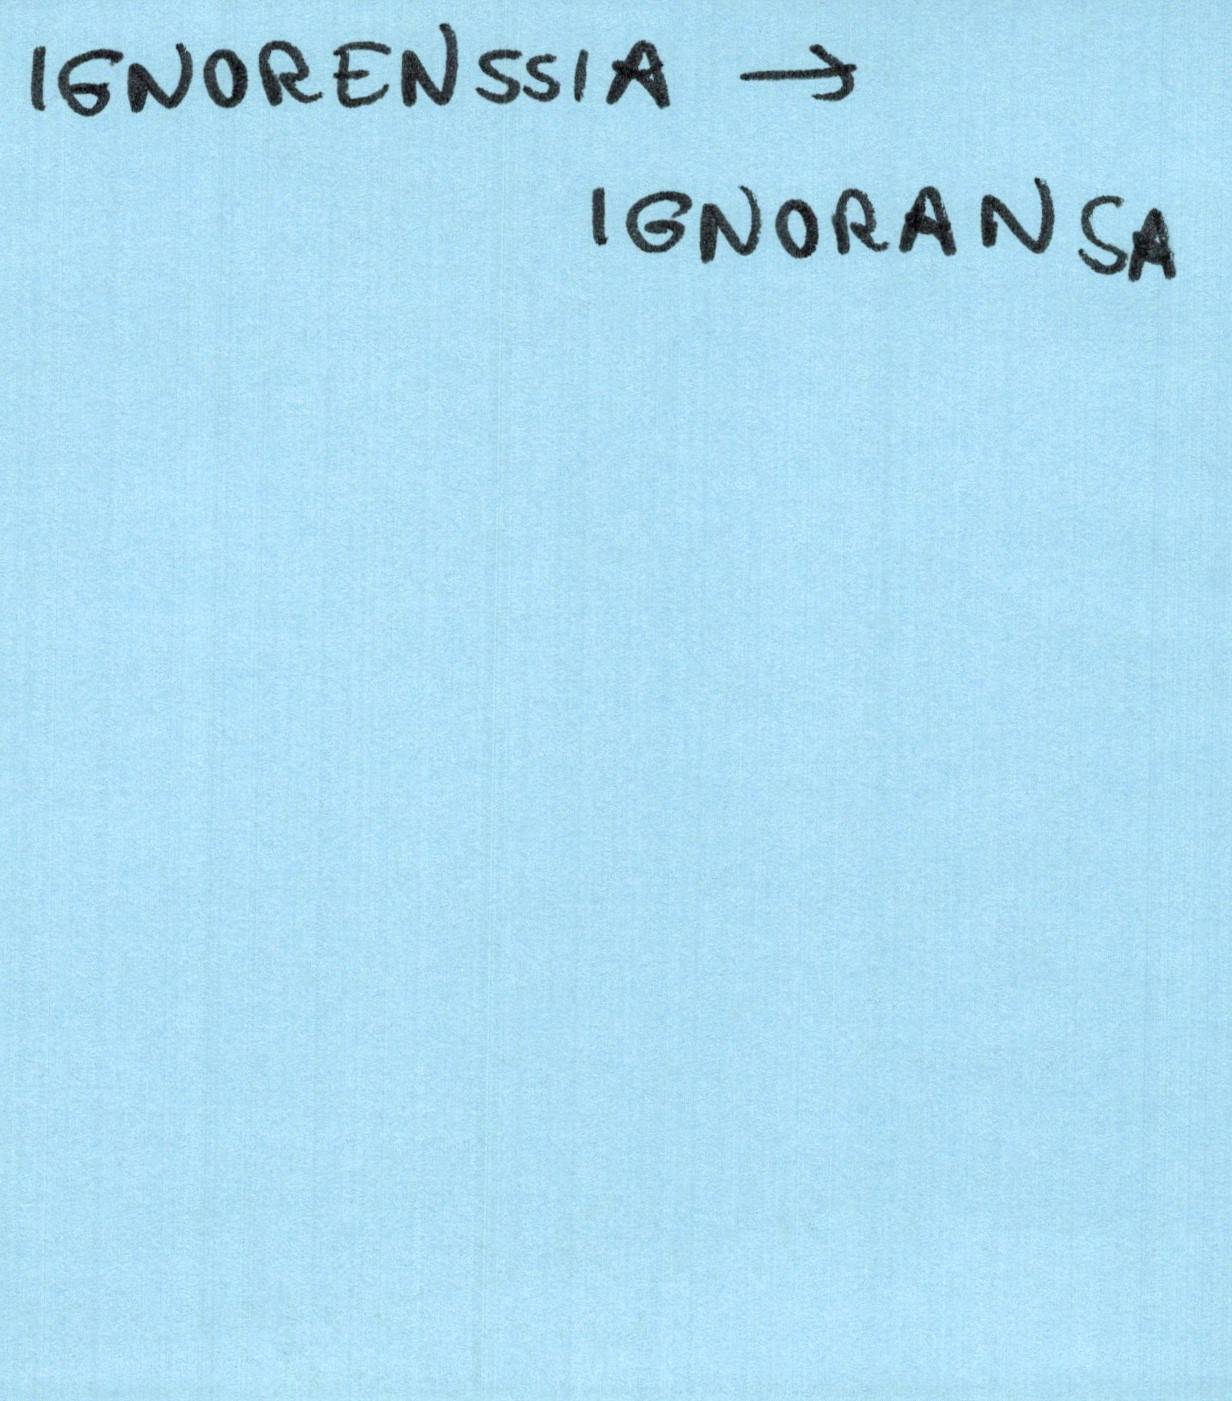 IGNORENSSIA →
IGNORANSA